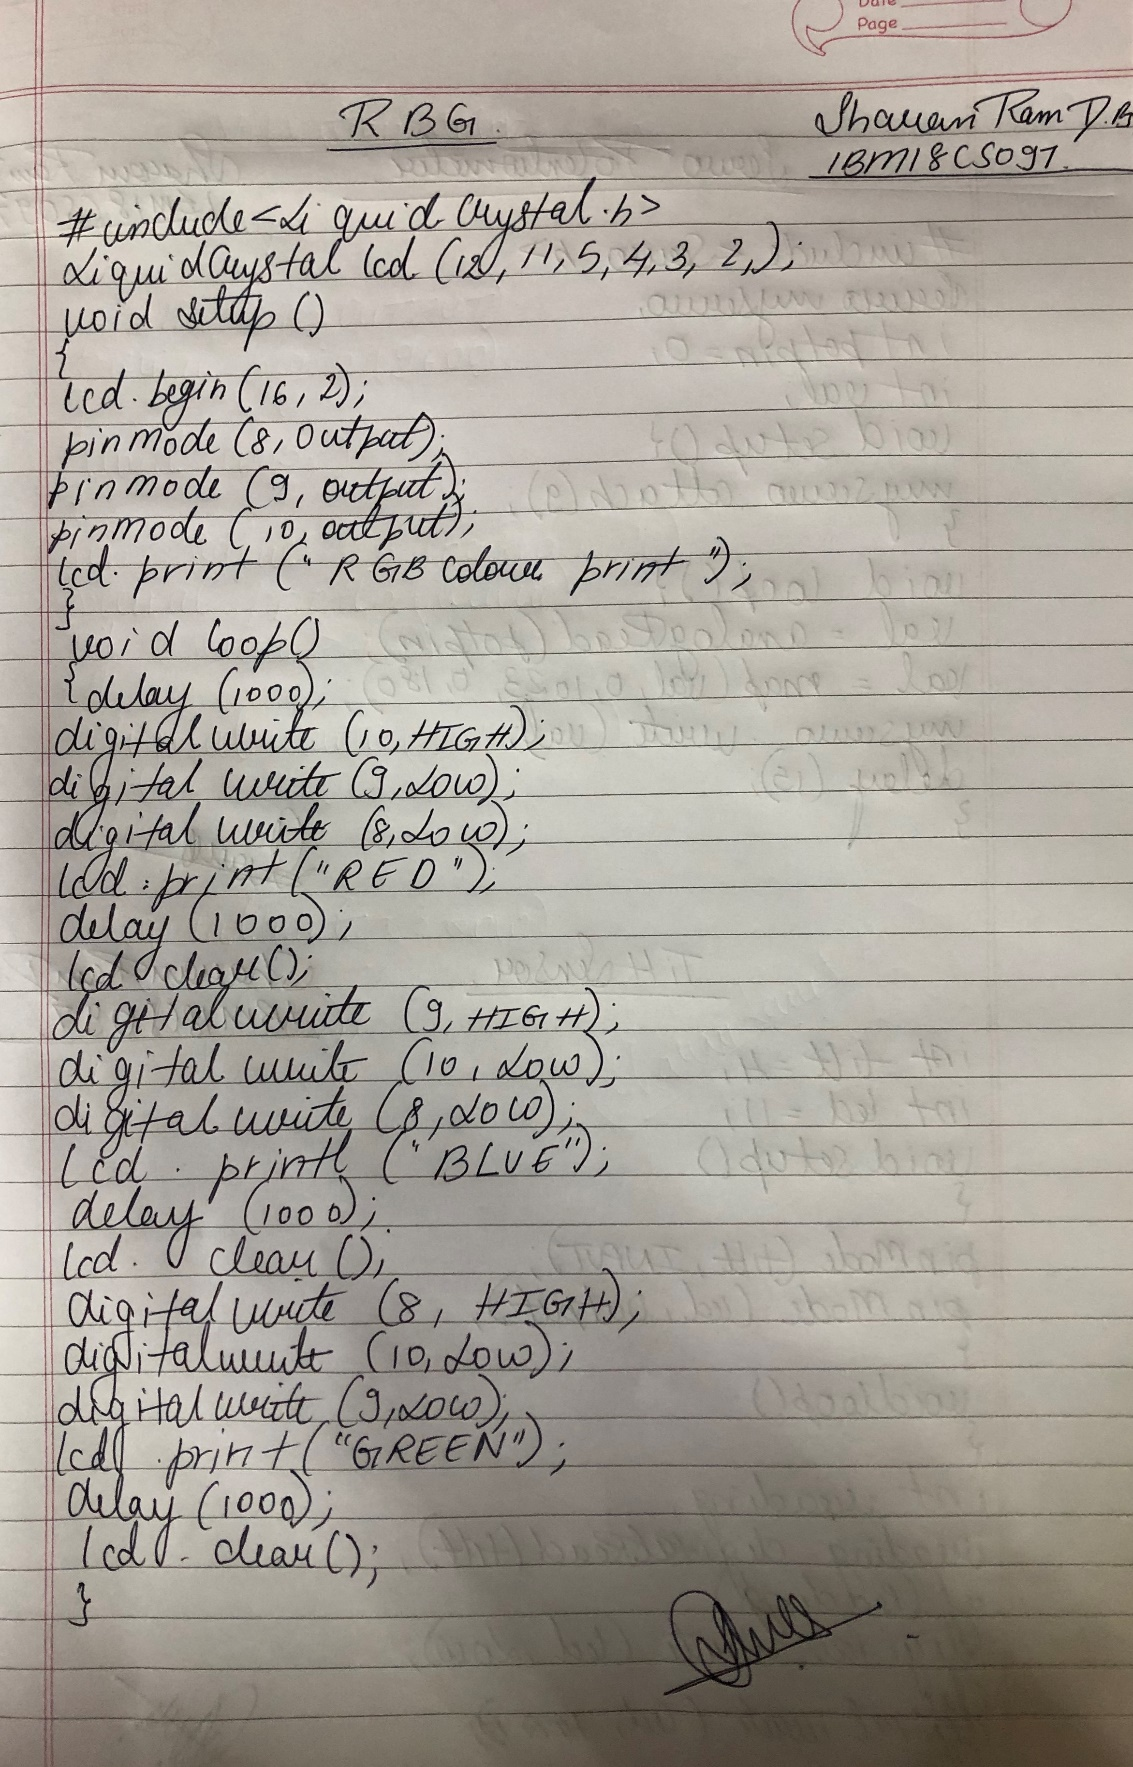 Date
Page
RBG
Sharan Ram D.B
1BM18CS097
#include<Liquid Crystal.h>
LiquidCrystal lcd (12, 11, 5, 4, 3, 2,);
void setup ()
{
lcd. begin (16, 2);
pinmode (8, Output);
pinmode (9, output);
pinmode (10, output);
lcd. print (" RGB Colour print ");
}
void loop()
{ delay (1000);
digital write (10, HIGH);
digital write (9, LOW);
digital write (8, LOW);
lcd . print ("RED");
delay (1000);
lcd clear();
digital write (9, HIGH);
digital write (10, LOW);
digital write (8, LOW);
lcd . print ("BLUE");
delay (1000);
lcd. clear ();
digital write (8, HIGH);
digital write (10, LOW);
digital write (9, LOW);
lcd . print ("GREEN");
delay (1000);
lcd . clear();
}